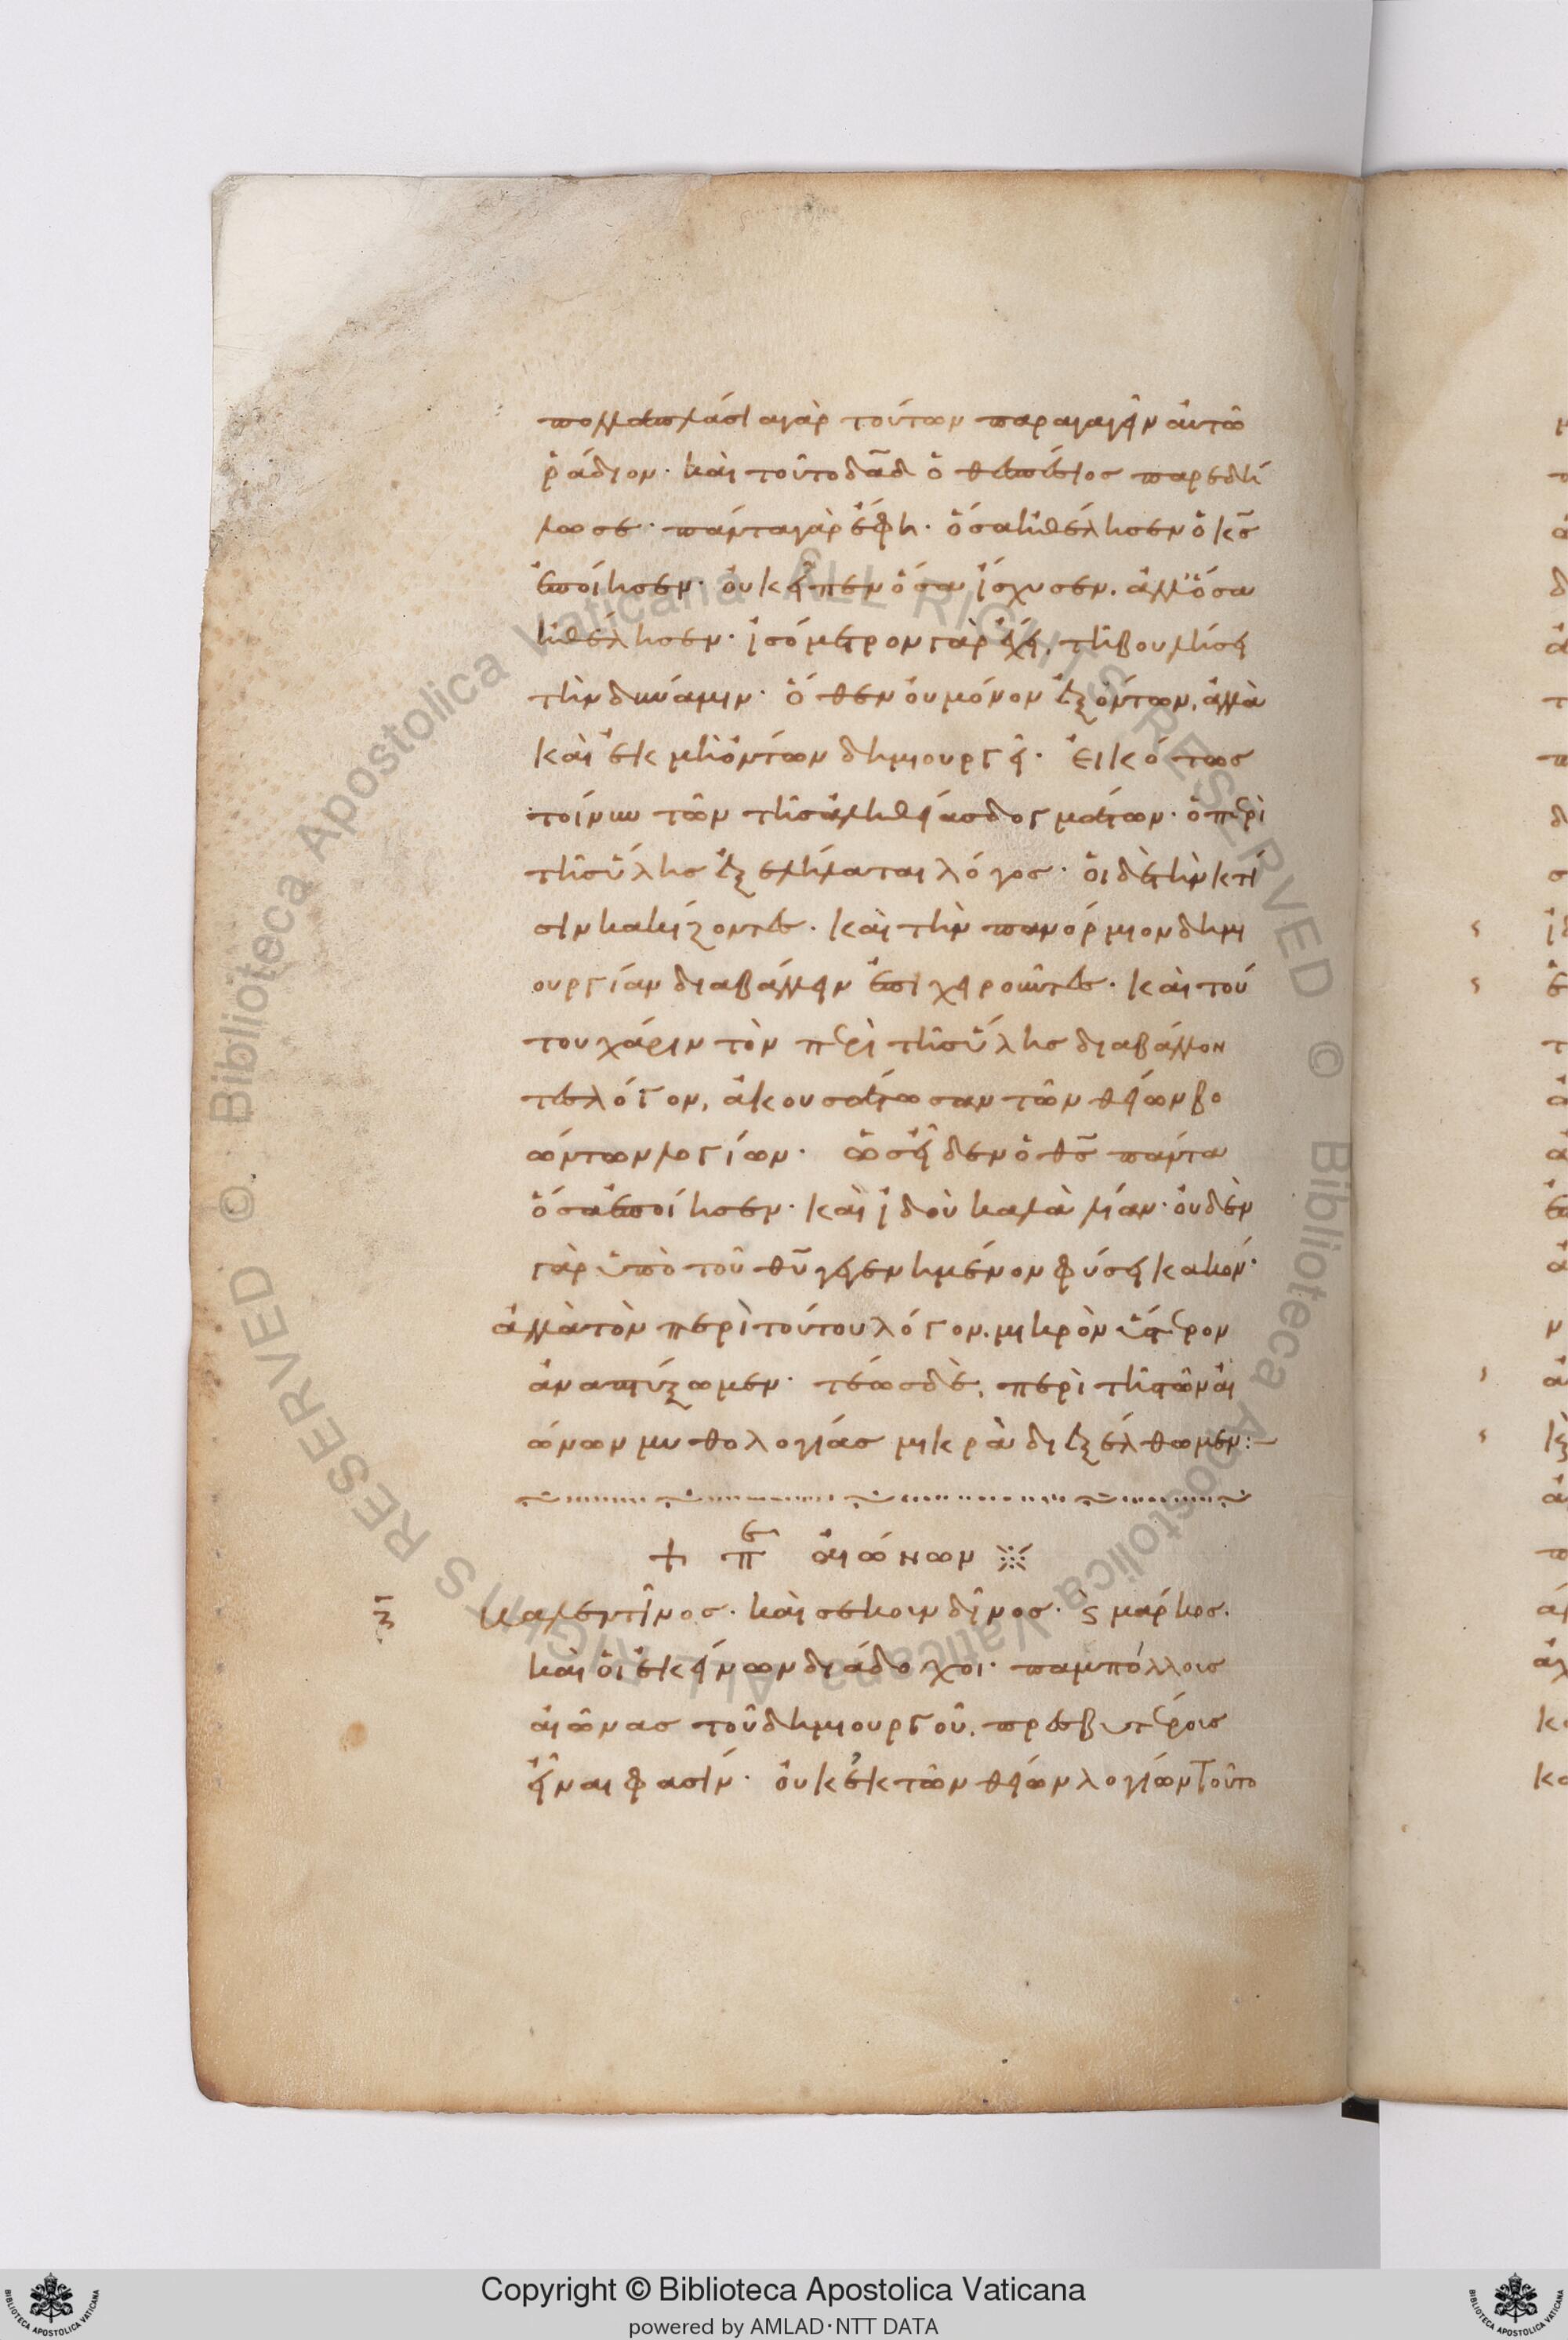 πολλαπλάσια γὰρ τούτων παραγαγεῖν αὐτῶ
ῥάδιον· καὶ τοῦτο δᾶδ ὁ θεσπέσιος παρεδή
λωσε· πάντα γὰρ ἔφη· ὅσα ἠθέλησεν ὁ κς̄
ἐποίησεν· οὐκ εἶπεν ὅσα ἴσχυσεν. ἀλλ' ὅσα
ἠθέλησεν· ἰσόμετρον γὰρ ἔχει, τῆ βουλήσει
τὴν δύναμιν· ὅθεν οὐ μόνον ἐξ ὄντων, ἀλλὰ
καὶ ἐκ μὴ ὄντων δημιουργεῖ· εἰκότως
τοίνυν τῶν τῆς ἀληθείας δογμάτων· ὁ περὶ
τῆς ὕλης ἐξελήλαται λόγος· οἱ δὲ τὴν κτί
σιν κακίζοντες· καὶ τὴν παναρμόνιον δημι
ουργίαν διαβάλλειν ἐπιχειροῦντες· καὶ τού
του χάριν τὸν περὶ τῆς ὕλης διαβάλλον
τες λόγον, ἀκουσάτωσαν τῶν θείων βο
ώντων λογίων· ὡς εἶδεν ὁ θς̄ πάντα
ὅσα ἐποίησεν· καὶ ἰδοὺ καλὰ λίαν· οὐδὲν
γὰρ ὑπὸ τοῦ θῦ γεγενημένον φύσει κακόν·
ἀλλὰ τὸν περὶ τούτου λόγον. μικρὸν ὕστερον
ἀναπτύξωμεν· τέως δὲ, περὶ τῆς τῶν αἰ
ώνων μυθολογίας μικρὰ διεξέλθωμεν:–
+ πε αἰώνων ※
ζ̄ Βαλεντῖνος· καὶ σεκουνδῖνος· ϛ μάρκος.
καὶ οἱ ἐκείνων διάδοχοι· παμπόλλοις
αἰῶνας τοῦ δημιουργοῦ, πρεσβυτέροις
εἶναι φασίν· οὐκ ἐκ τῶν θείων λογίων τοῦτο
Copyright © Biblioteca Apostolica Vaticana
powered by AMLAD·NTT DATA